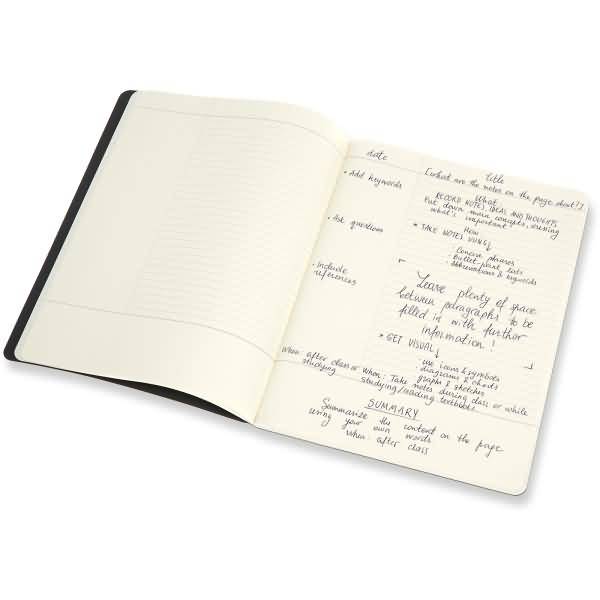 date
Title
[what are the notes on the page about?]
• Add keywords
• Ask questions
• Include references
What
RECORD NOTES, IDEAS AND THOUGHTS,
Put down main concepts, discerning
what's important
How
* TAKE NOTES USING ↓
- Concise phrases
- Bullet point lists
- Abbreviations & keywords
Leave plenty of space
between paragraphs to be
filled in with further
information!
* GET VISUAL ↓
- use icons & symbols
- diagrams & charts
- graphs & sketches
When: after class or
studying
When: Take notes during class or while
studying/reading textbooks
SUMMARY
Summarize the content on the page
using your own words
when: after class